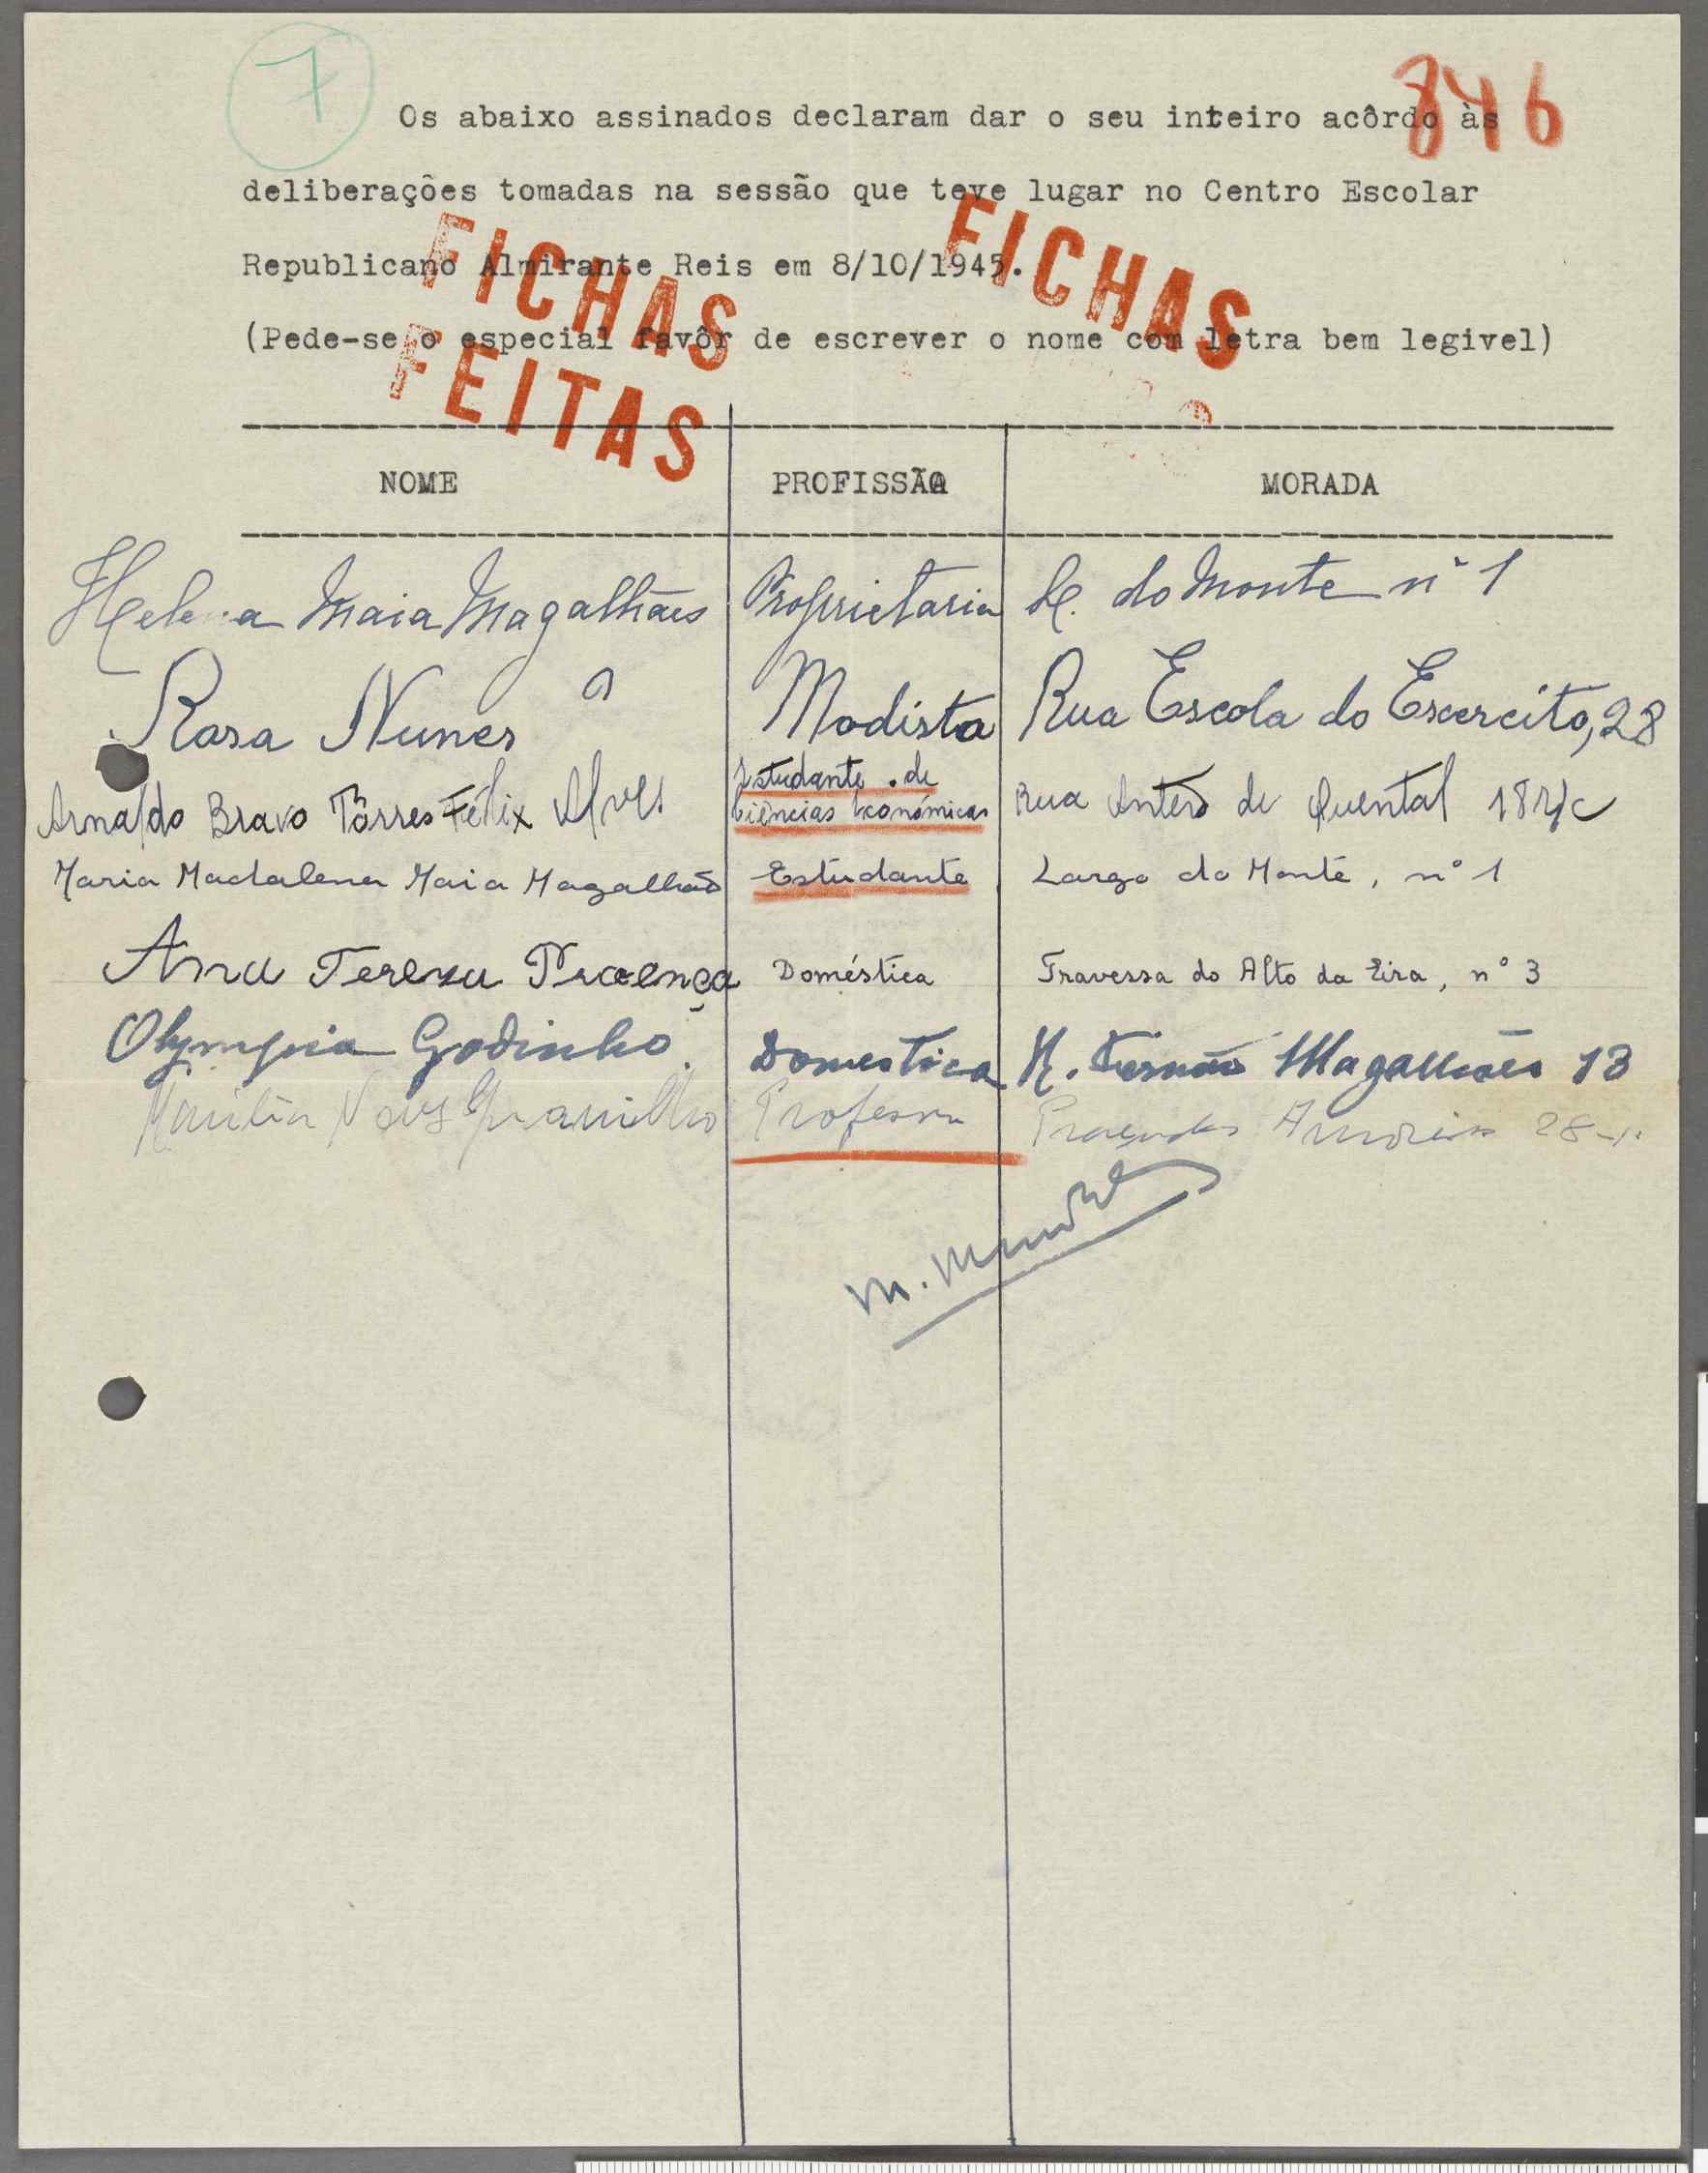 7
846
Os abaixo assinados declaram dar o seu inteiro acôrdo às
deliberações tomadas na sessão que teve lugar no Centro Escolar
Republicano Almirante Reis em 8/10/1945.
(Pede-se o especial favôr de escrever o nome com letra bem legivel)
FICHAS
FEITAS
FICHAS
NOME PROFISSÃO MORADA
Helena Maia Magalhães Proprietaria L. do Monte nº 1
Rosa Nunes Modista Rua Escola do Exercito, 28
Arnaldo Bravo Tôrres Félix Alves Estudante de Ciências Económicas Rua Antero de Quental 18 r/c
Maria Madalena Maia Magalhães Estudante Largo do Monte, nº 1
Ana Tereza Proença Doméstica Travessa do Alto da Eira, nº 3
Olympia Godinho Domestica R. Fernão Magalhães 13
Professora 28
M.